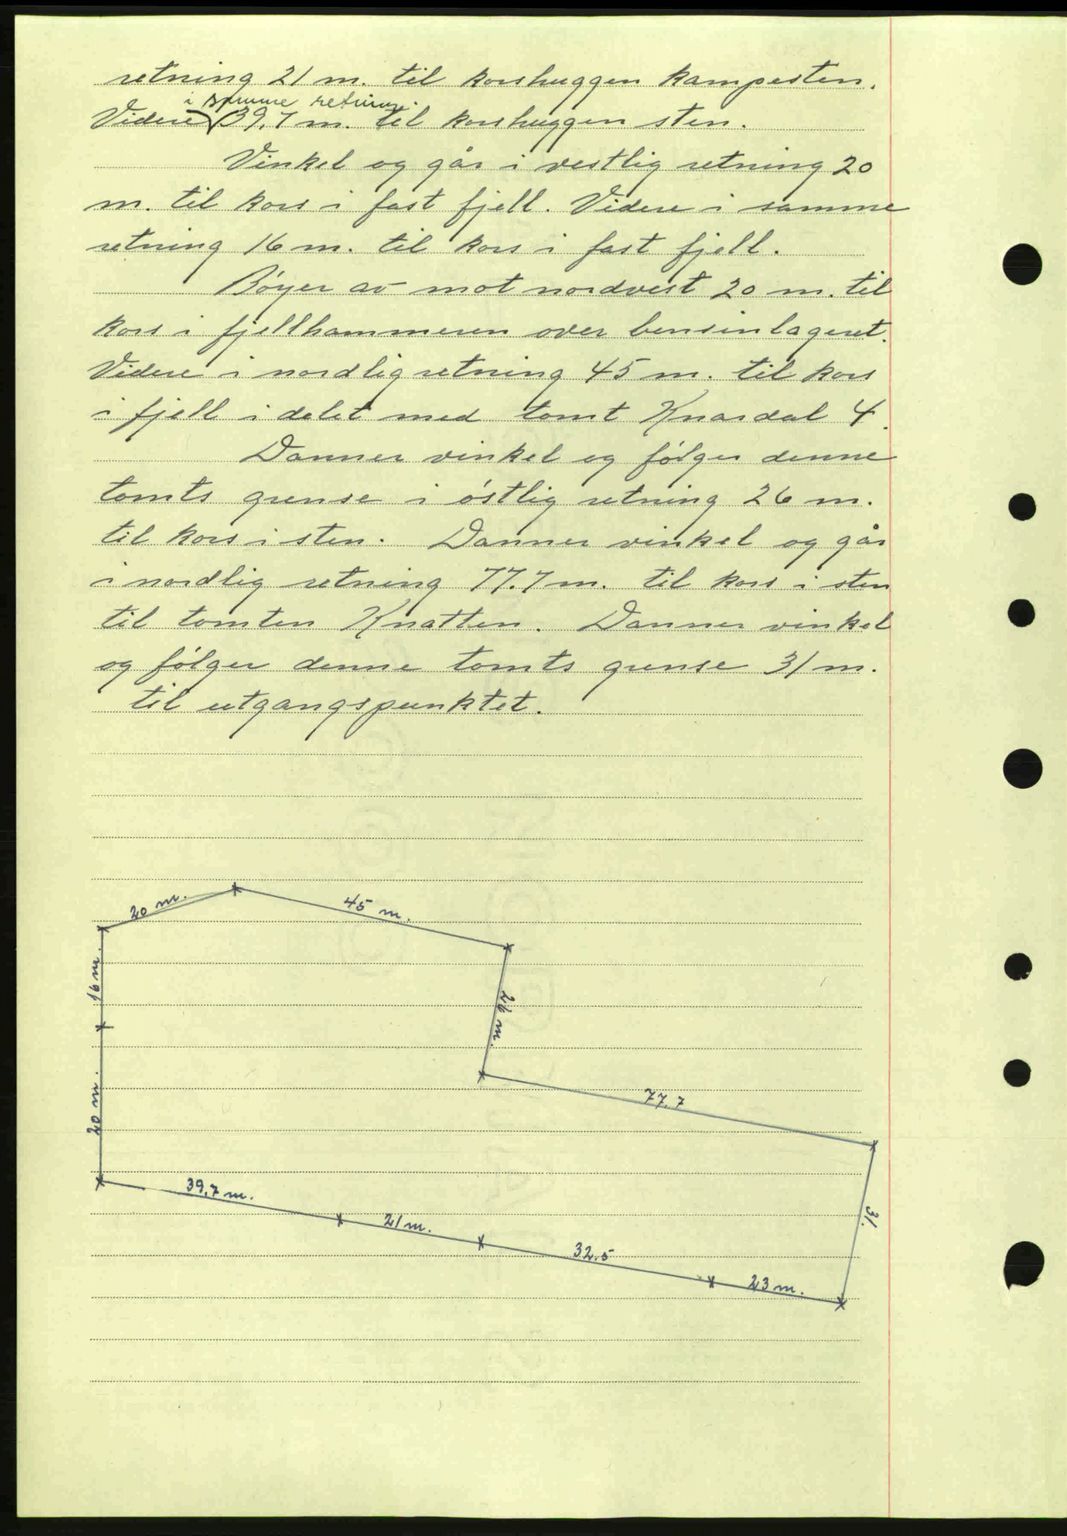 retning 21 m. til korshuggen kampesten.
i samme retning.
Videre 39,7 m. til korshuggen sten.
Vinkel og går i vestlig retning 20
m. til kors i fast fjell. Videre i samme
retning 16 m. til kors i fast fjell.
Bøyer av mot nordvest 20 m. til
kors i fjellhammeren over bensinlageret.
Videre i nordlig retning 45 m. til kors
i fjell i delet med tomt Knardal 4.
Danner vinkel og følger denne
tomts grense i østlig retning 26 m.
til kors i sten. Danner vinkel og går
i nordlig retning 77.7 m. til kors i sten
til tomten Knatten. Danner vinkel
og følger denne tomts grense 31 m.
til utgangspunktet.
20 m.
45 m.
16 m.
26 m.
20 m.
77.7
39,7 m.
21 m.
32.5
23 m.
31.